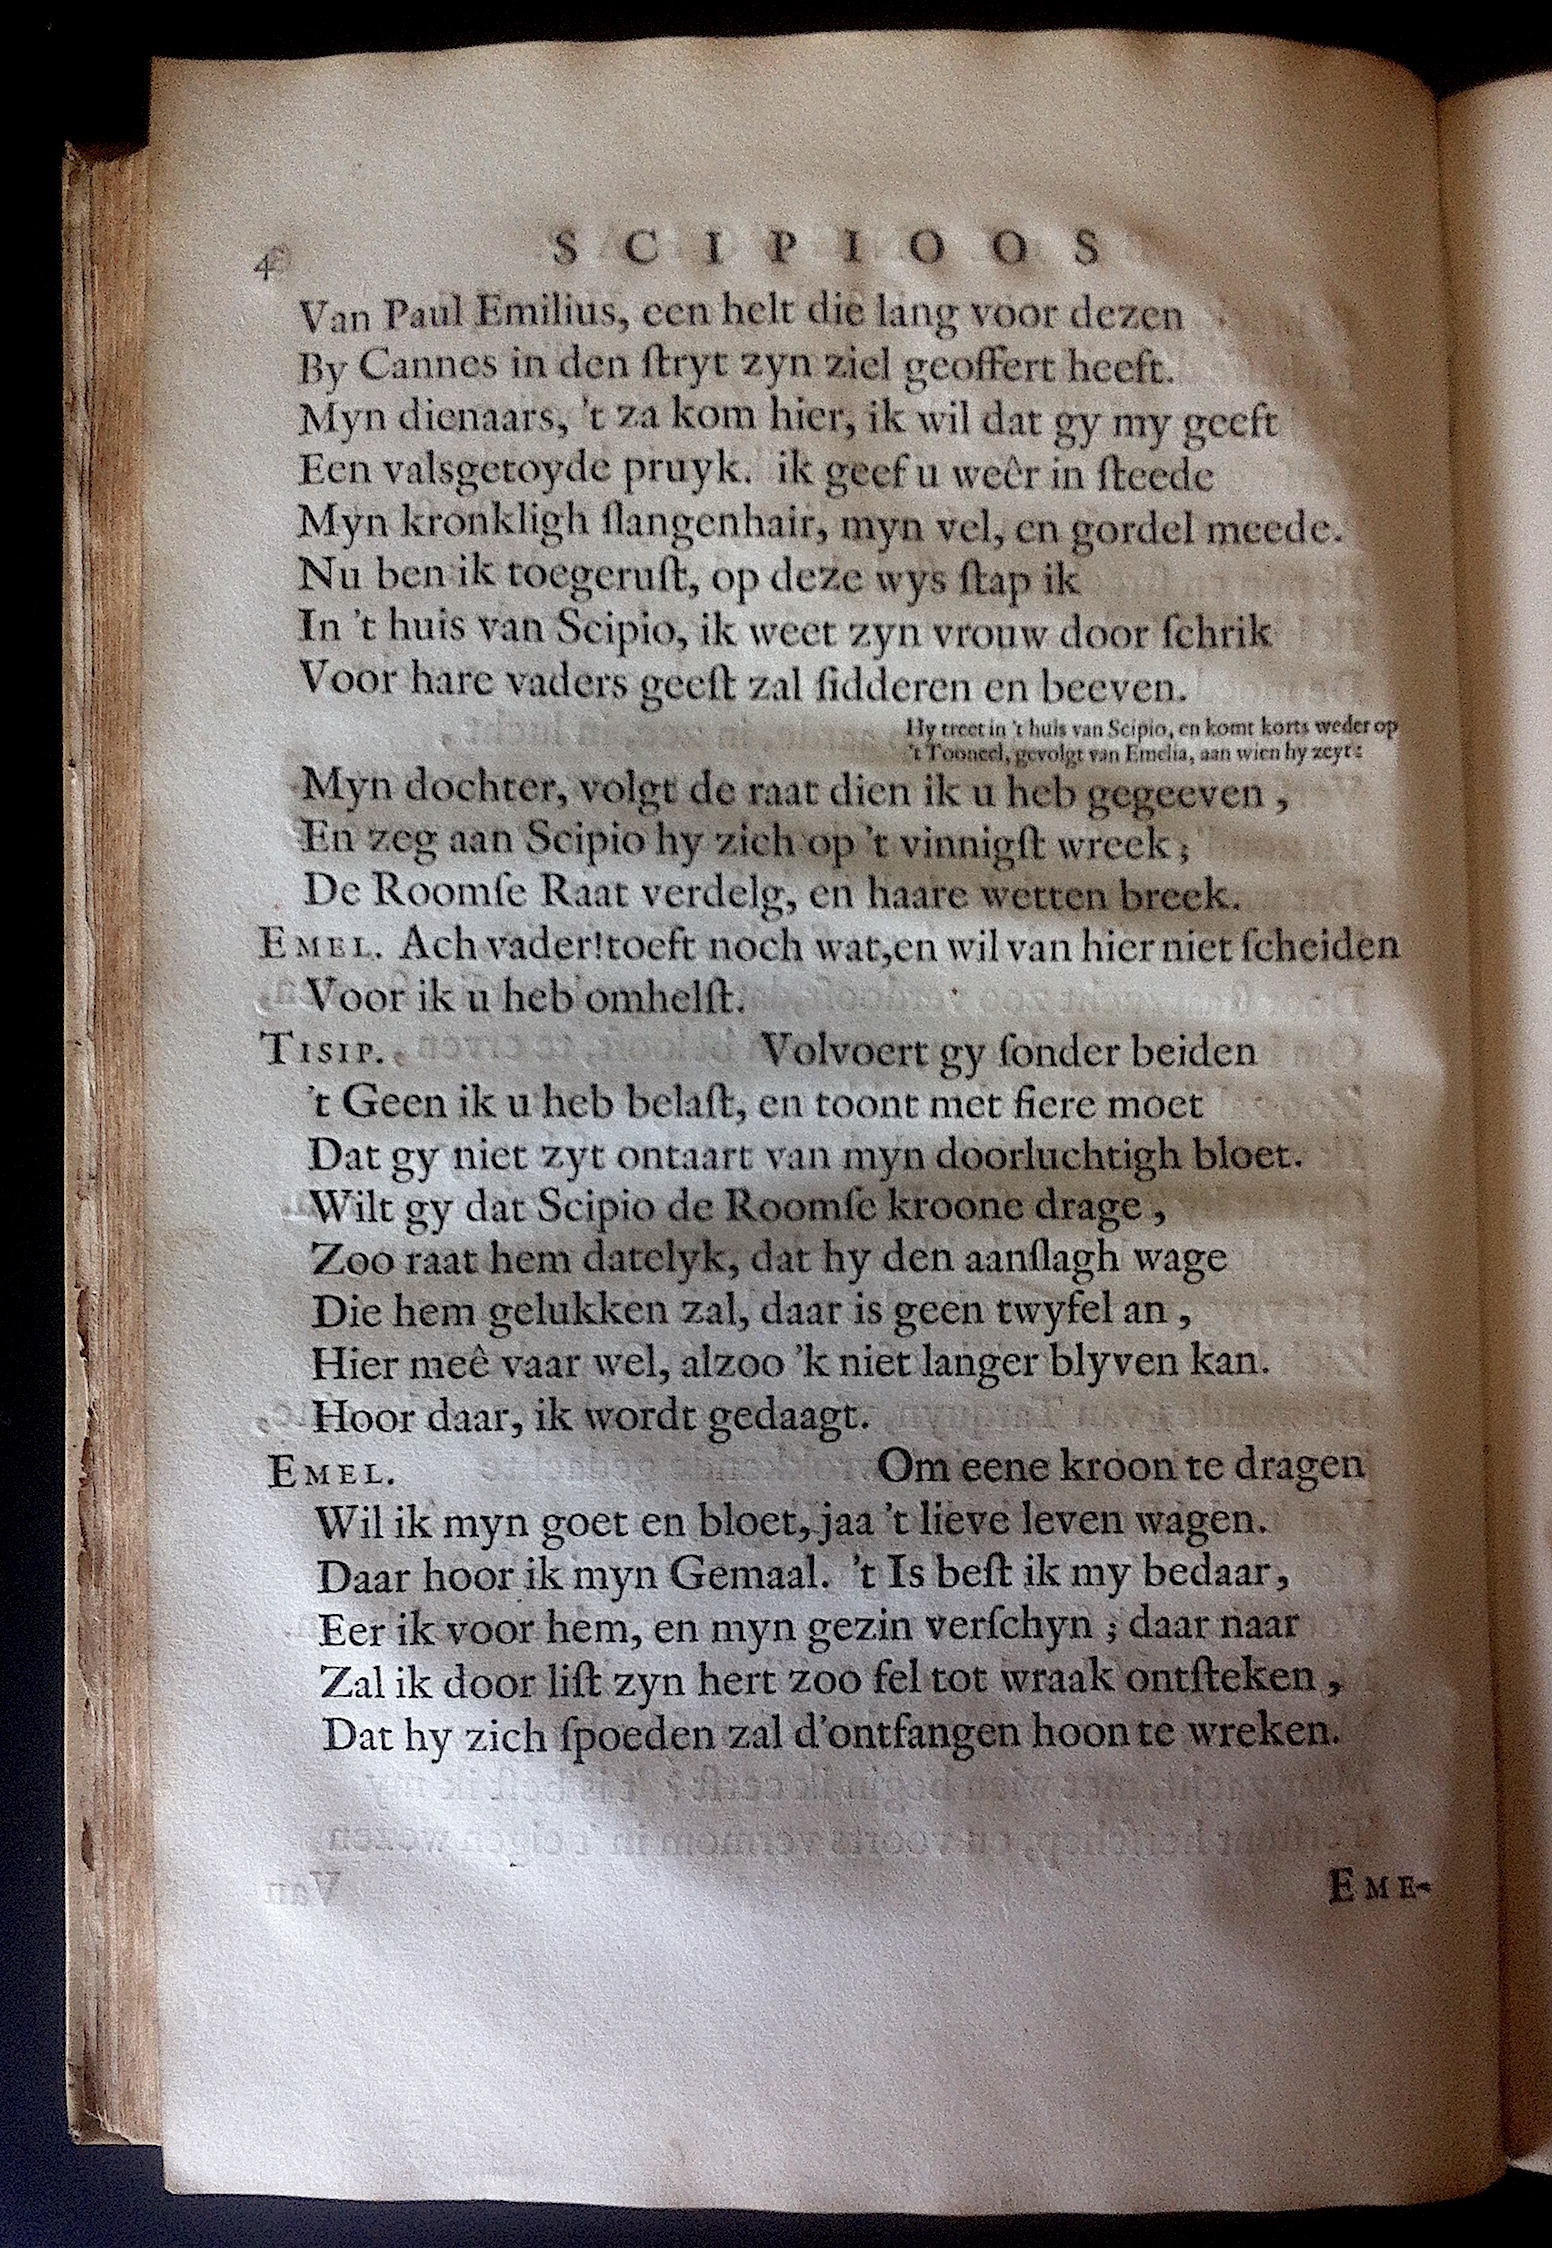 4 SCIPIOOS
Van Paul Emilius, een helt die lang voor dezen
By Cannes in den ſtryt zyn ziel geoffert heeft.
Myn dienaars, 't za kom hier, ik wil dat gy my geeft
Een valsgetoyde pruyk. ik geef u weêr in ſteede
Myn kronkligh ſlangenhair, myn vel, en gordel meede.
Nu ben ik toegeruſt, op deze wys ſtap ik
In 't huis van Scipio, ik weet zyn vrouw door ſchrik
Voor hare vaders geeſt zal ſidderen en beeven.
Hy treet in 't huis van Scipio, en komt korts weder op
't Tooneel, gevolgt van Emelia, aan wien hy zeyt:
Myn dochter, volgt de raat dien ik u heb gegeeven,
En zeg aan Scipio hy zich op 't vinnigſt wreek;
De Roomſe Raat verdelg, en haare wetten breek.
EMEL. Ach vader! toeft noch wat, en wil van hier niet ſcheiden
Voor ik u heb omhelſt.
TISIP. Volvoert gy ſonder beiden
't Geen ik u heb belaſt, en toont met fiere moet
Dat gy niet zyt ontaart van myn doorluchtigh bloet.
Wilt gy dat Scipio de Roomſe kroone drage,
Zoo raat hem datelyk, dat hy den aanſlagh wage
Die hem gelukken zal, daar is geen twyfel an,
Hier meê vaar wel, alzoo 'k niet langer blyven kan.
Hoor daar, ik wordt gedaagt.
EMEL. Om eene kroon te dragen
Wil ik myn goet en bloet, jaa 't lieve leven wagen.
Daar hoor ik myn Gemaal. 't Is beſt ik my bedaar,
Eer ik voor hem, en myn gezin verſchyn; daar naar
Zal ik door liſt zyn hert zoo fel tot wraak ontſteken,
Dat hy zich ſpoeden zal d'ontfangen hoon te wreken.
EME-